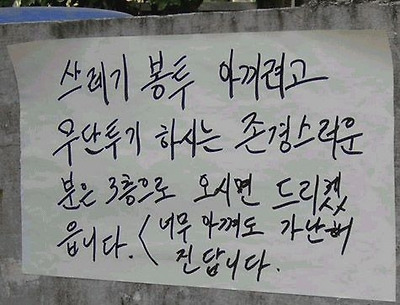 쓰레기 봉투 아끼려고
무단투기 하시는 존경스러운
분은 3층으로 오시면 드리겠
읍니다. (너무 아껴도 가난해
진답니다.